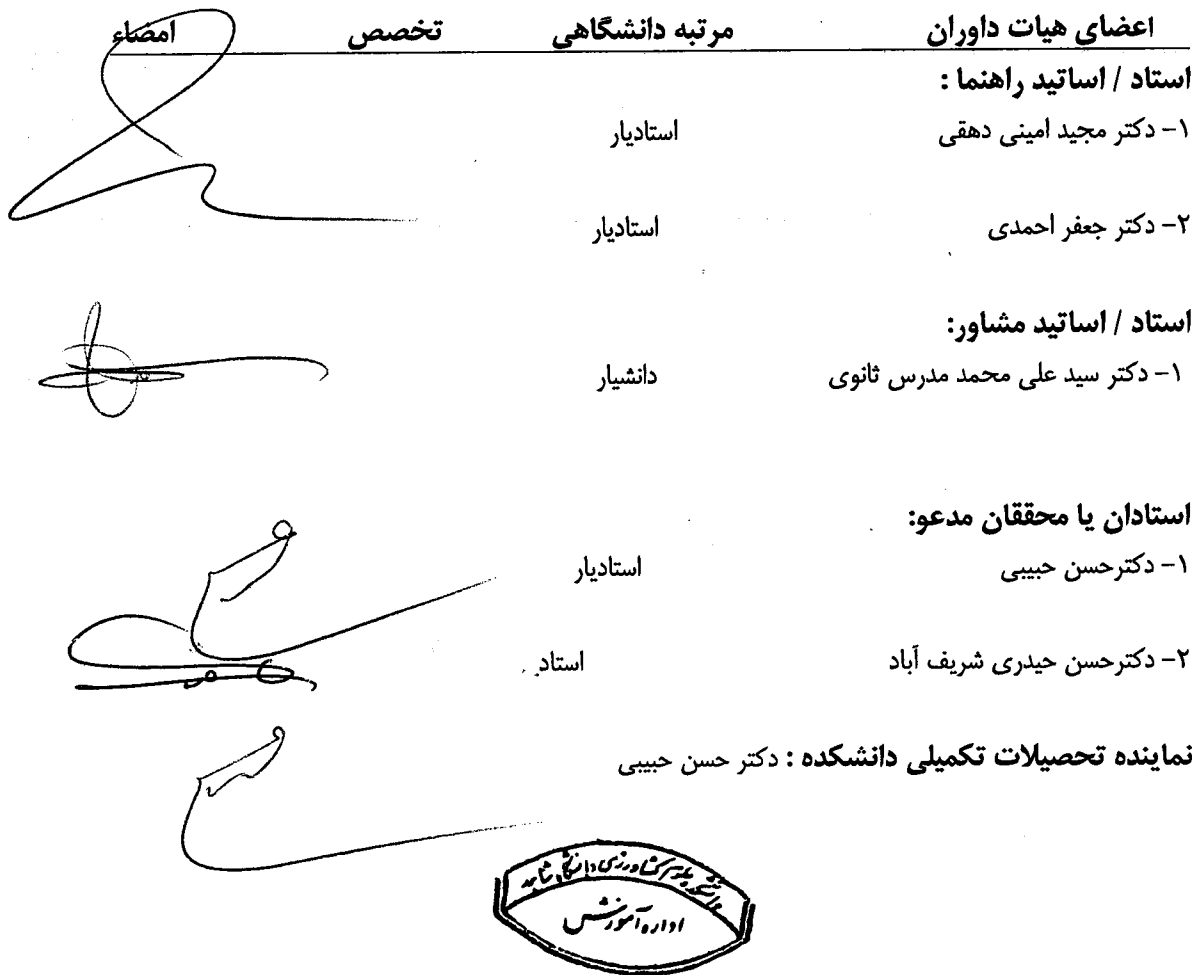 اعضای هیات داوران مرتبه دانشگاهی تخصص امضاء
استاد / اساتید راهنما :
۱- دکتر مجید امینی دهقی استادیار
۲- دکتر جعفر احمدی استادیار
استاد / اساتید مشاور:
۱- دکتر سید علی محمد مدرس ثانوی دانشیار
استادان یا محققان مدعو:
۱- دکترحسن حبیبی استادیار
۲- دکترحسن حیدری شریف آباد استاد
نماینده تحصیلات تکمیلی دانشکده : دکتر حسن حبیبی
دانشکده علوم کشاورزی دانشگاه شاهد
اداره آموزش